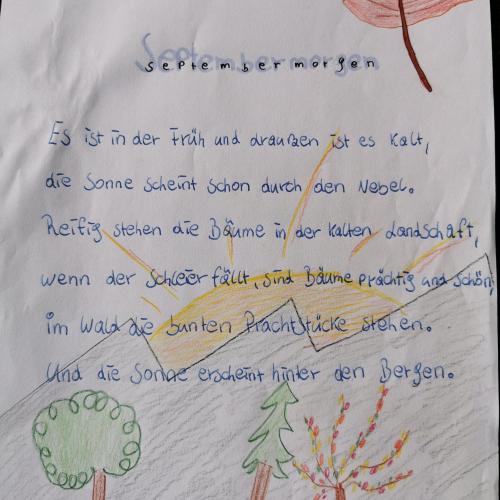 Septembermorgen
Es ist in der Früh und draußen ist es kalt,
die Sonne scheint schon durch den Nebel.
Reifig stehen die Bäume in der kalten Landschaft,
wenn der Schleier fällt, sind Bäume prächtig und schön,
im Wald die bunten Prachtstücke stehen.
Und die Sonne erscheint hinter den Bergen.